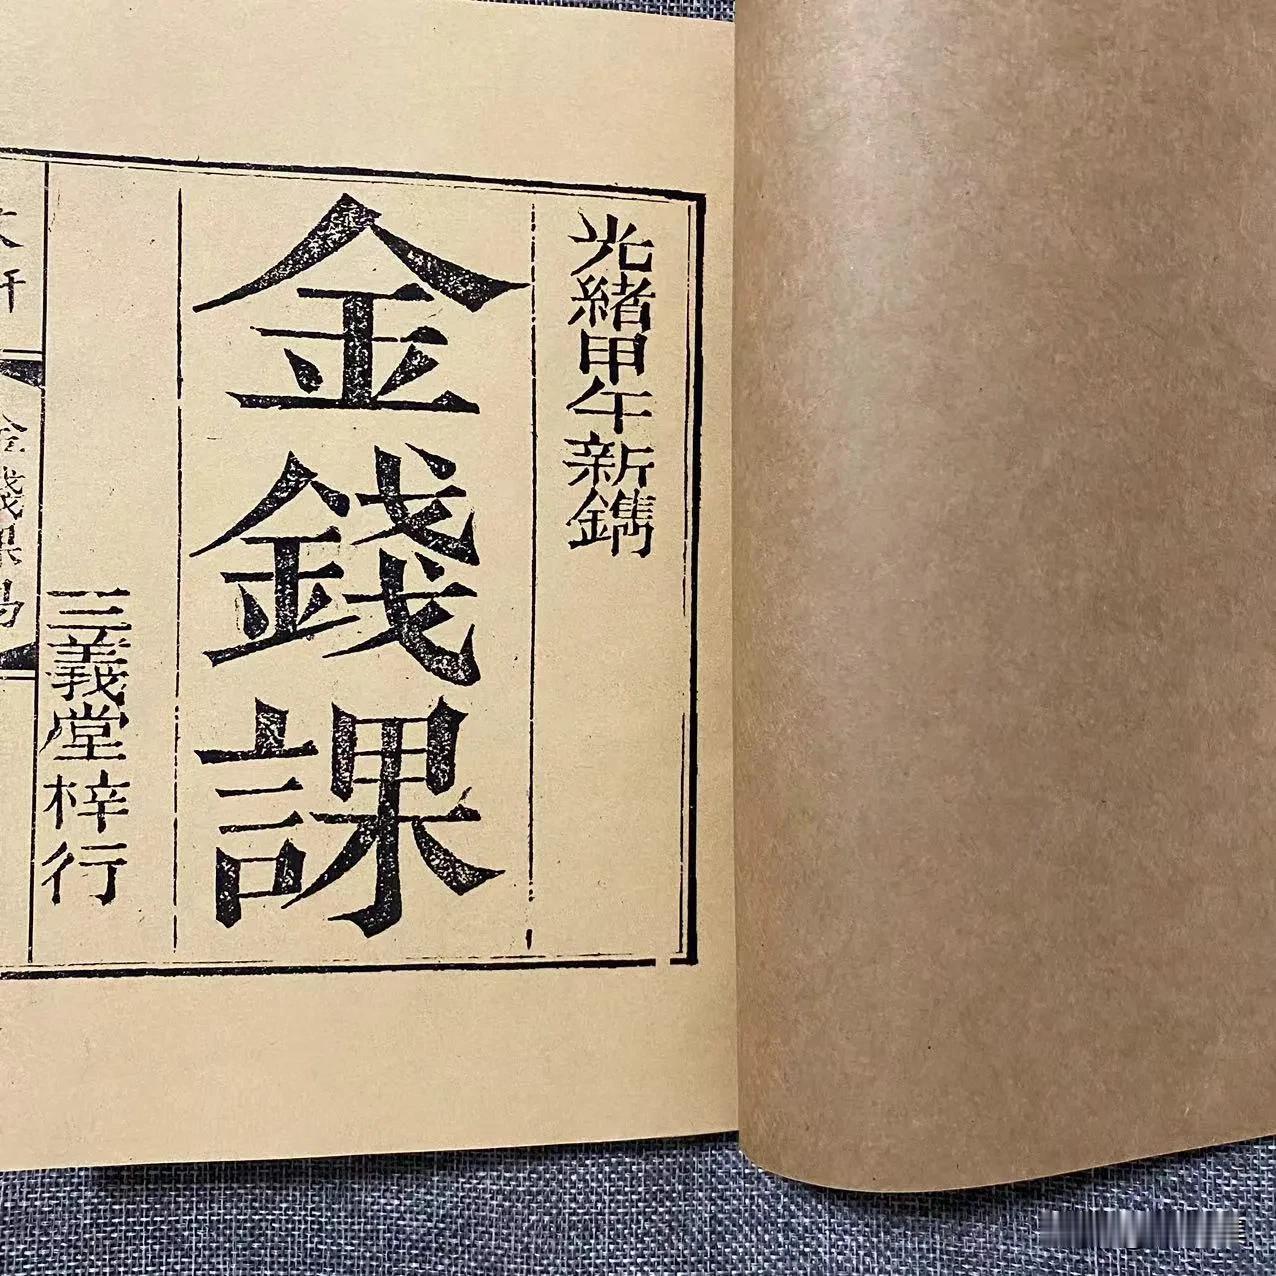 光緒甲午新鐫
金錢課
三義堂梓行
金錢課